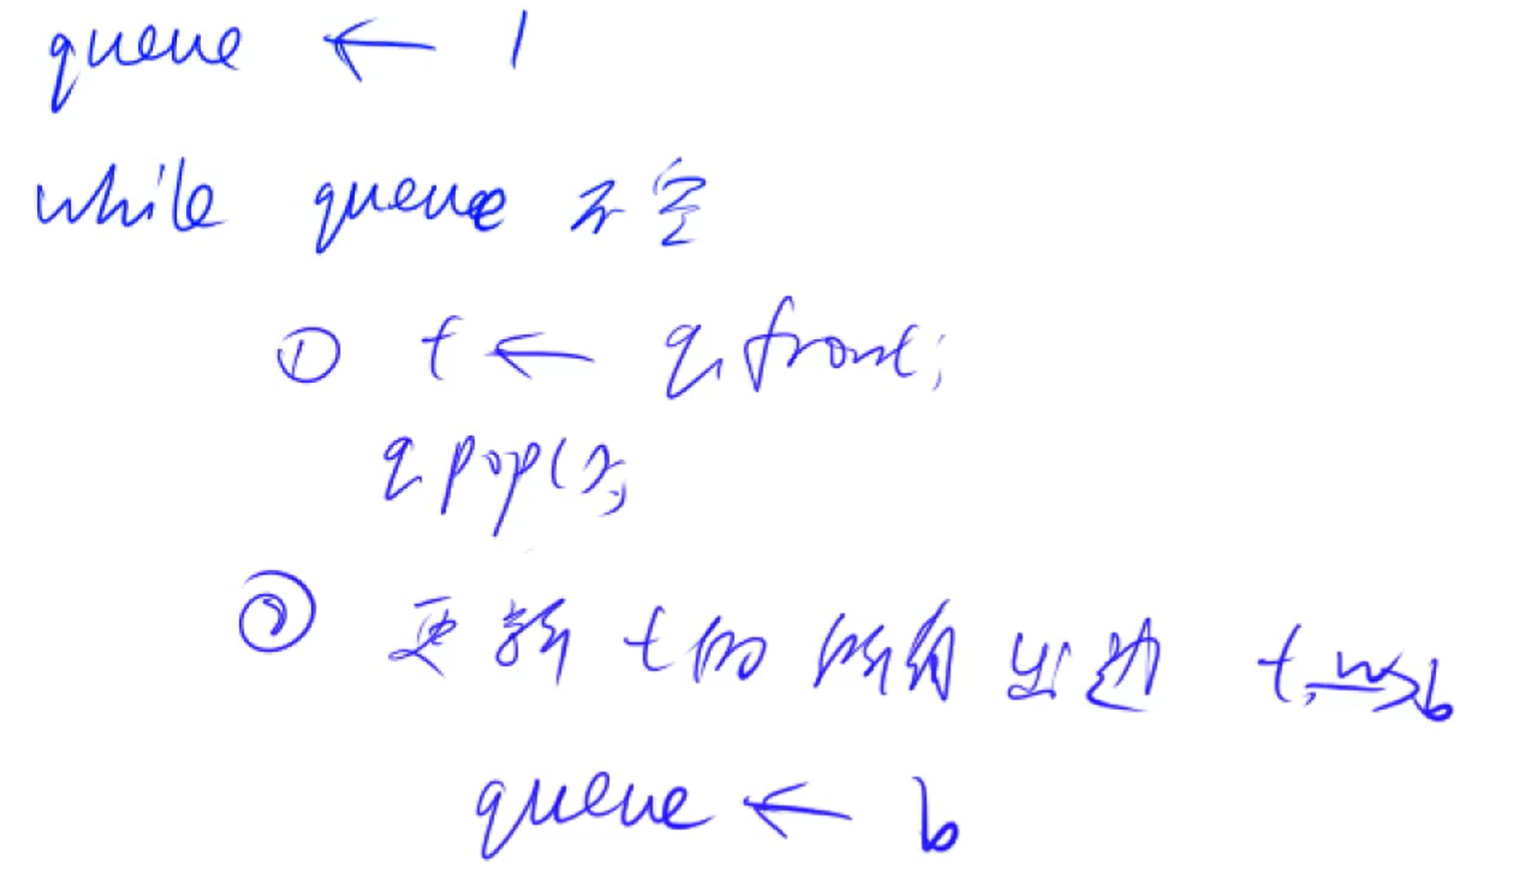 queue ← 1
while queue 不空
① t ← q.front;
q pop();
② 更新 t的 所有 出边 t, w→ b
queue ← b